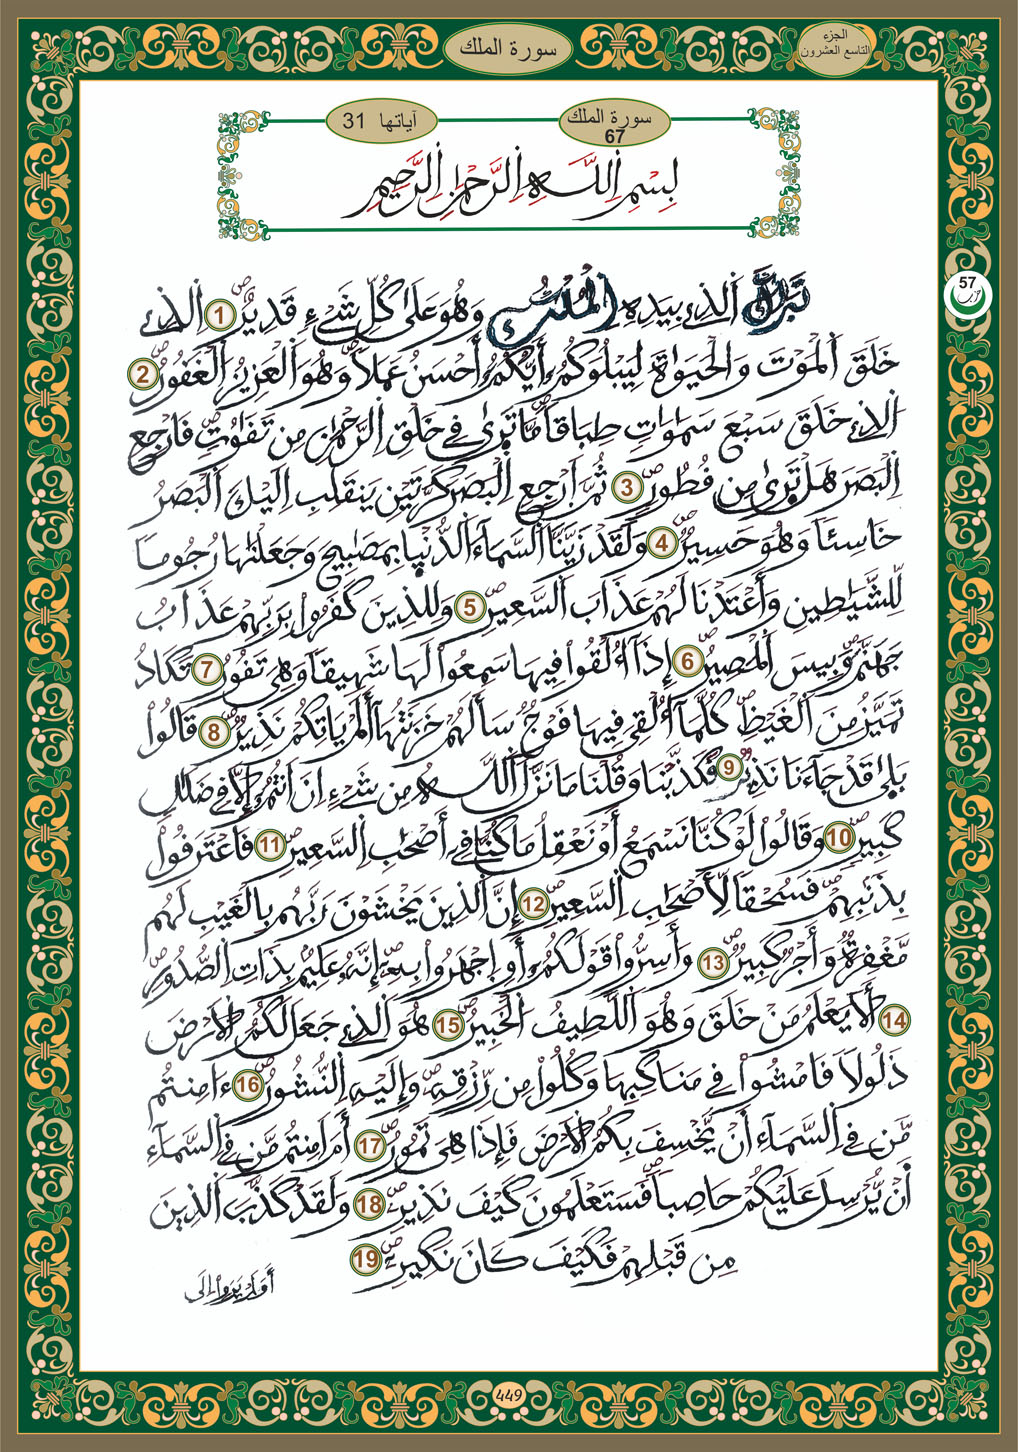 سورة الملك
الجزء
التاسع العشرون
سورة الملك
67
آياتها 31
بِسْمِ اِللَّهِ اِلرَّحْمَٰنِ اِلرَّحِيمِ
57
حزب
تَبَٰرَكَ اَلذِے بِيَدِهِ اِلْمُلْكُ وَهُوَ عَلَىٰ كُلِّ شَےْءٖ قَدِيرٌۖ 1 اِلذِے
خَلَقَ اَلْمَوْتَ وَالْحَيَوٰةَ لِيَبْلُوَكُمُۥٓ أَيُّكُمُۥٓ أَحْسَنُ عَمَلاٗۖ وَهُوَ اَلْعَزِيزُ اُلْغَفُورُۖ 2
اُلذِے خَلَقَ سَبْعَ سَمَٰوَٰتٖ طِبَاقاٗۖ مَّا تَرَىٰ فِے خَلْقِ اِلرَّحْمَٰنِ مِن تَفَٰوُتٖۖ فَارْجِعِ
اِلْبَصَرَ هَلْ تَرَىٰ مِن فُطُورٖۖ 3 ثُمَّ اَرْجِعِ اِلْبَصَرَ كَرَّتَيْنِ يَنقَلِبِ اِلَيْكَ اَلْبَصَرُ
خَاسِئاٗ وَهُوَ حَسِيرٞۖ 4 وَلَقَدْ زَيَّنَّا اَلسَّمَآءَ اَلدُّنْيَا بِمَصَٰبِيحَ وَجَعَلْنَٰهَا رُجُوماٗ
لِّلشَّيَٰطِينِ وَأَعْتَدْنَا لَهُمْ عَذَابَ اَلسَّعِيرِۖ 5 وَلِلذِينَ كَفَرُواْ بِرَبِّهِمْ عَذَابُ
جَهَنَّمَۖ وَبِيسَ اَلْمَصِيرُۖ 6 إِذَآ أُلْقُواْ فِيهَا سَمِعُواْ لَهَا شَهِيقاٗ وَهِيَ تَفُورُۖ 7 تَكَادُ
تَمَيَّزُ مِنَ اَلْغَيْظِۖ كُلَّمَآ أُلْقِيَ فِيهَا فَوْجٞ سَأَلَهُمْ خَزَنَتُهَآ أَلَمْ يَاتِكُمْ نَذِيرٞۖ 8 قَالُواْ
بَلَىٰ قَدْ جَآءَنَا نَذِيرٞۖ 9 فَكَذَّبْنَا وَقُلْنَا مَا نَزَّلَ اَللَّهُ مِن شَےْءٍ اِنَ اَنتُمُۥٓ إِلَّا فِے ضَلَٰلٖ
كَبِيرٖۖ 10 وَقَالُواْ لَوْ كُنَّا نَسْمَعُ أَوْ نَعْقِلُ مَا كُنَّا فِےٓ أَصْحَٰبِ اِلسَّعِيرِۖ 11 فَاعْتَرَفُواْ
بِذَنۢبِهِمْۖ فَسُحْقاٗ لِّأَصْحَٰبِ اِلسَّعِيرِۖ 12 إِنَّ اَلذِينَ يَخْشَوْنَ رَبَّهُم بِالْغَيْبِ لَهُم
مَّغْفِرَةٞ وَأَجْرٞ كَبِيرٞۖ 13 وَأَسِرُّواْ قَوْلَكُمُۥٓ أَوِ اِجْهَرُواْ بِهِۦٓۖ إِنَّهُۥ عَلِيمُۢ بِذَاتِ اِلصُّدُورِۖ
14 أَلَا يَعْلَمُ مَنْ خَلَقَ وَهُوَ اَللَّطِيفُ اُلْخَبِيرُۖ 15 هُوَ اَلذِے جَعَلَ لَكُمُ اُلْأَرْضَ
ذَلُولاٗ فَامْشُواْ فِے مَنَاكِبِهَا وَكُلُواْ مِن رِّزْقِهِۦۖ وَإِلَيْهِ اِلنُّشُورُۖ 16 ءَٰامِنتُم
مَّن فِے اِلسَّمَآءِ اَنْ يَّخْسِفَ بِكُمُ اُلْأَرْضَ فَإِذَا هِيَ تَمُورُۖ 17 أَمَ اَمِنتُم مَّن فِے اِلسَّمَآءِ
اَنْ يُّرْسِلَ عَلَيْكُمْ حَاصِباٗۖ فَسَتَعْلَمُونَ كَيْفَ نَذِيرِۦۖ 18 وَلَقَدْ كَذَّبَ اَلذِينَ
مِن قَبْلِهِمْ فَكَيْفَ كَانَ نَكِيرِۦٓۖ 19
أَوَلَمْ يَرَوِاْ اِلَى
449